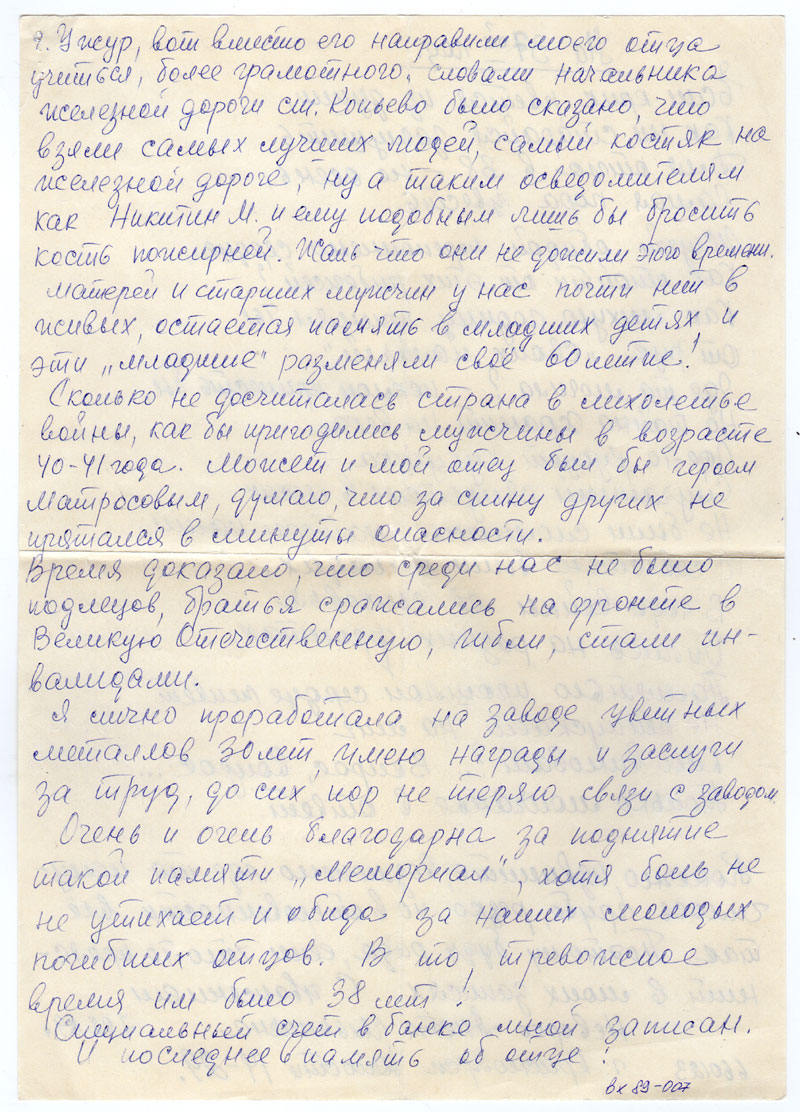 г. Ужур, вот вместо его направили моего отца
учиться, более грамотного. словами начальника
железной дороги ст. Копьево было сказано, что
взяли самых лучших людей, самый костяк на
железной дороге, ну а таким осведомителям
как Никитин М. и ему подобным лишь бы бросить
кость пожирней. Жаль что они не дожили этого времени.
Матерей и старших мужчин у нас почти нет в
живых, остается память в младших детях и
эти „младшие" разменяли своё 60летие!
Сколько не досчиталась страна в лихолетье
войны, как бы пригодились мужчины в возрасте
40-41 года. Может и мой отец был бы героем
Матросовым, думаю, что за спину других не
прятался в минуты опасности.
Время доказало, что среди нас не было
подлецов, братья сражались на фронте в
Великую Отечественную, гибли, стали ин-
валидами.
Я лично проработала на заводе цветных
металлов 30 лет, имею награды и заслуги
за труд, до сих пор не теряю связи с заводом.
Очень и очень благодарна за поднятие
такой памяти „Мемориал", хотя боль не
не утихает и обида за наших молодых
погибших отцов. В то тревожное
время им было 38 лет!
Специальный счет в банке мной записан.
И последнее в память об отце:
вх 89-007